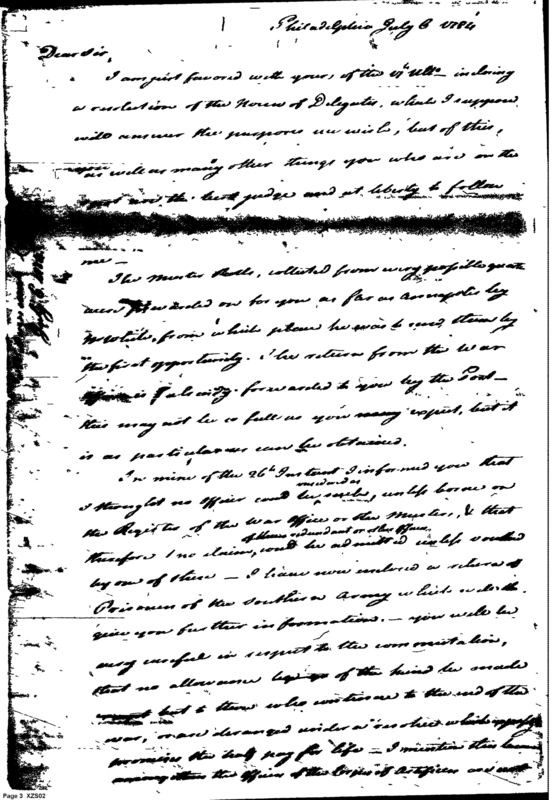 Philadelphia July 6 1784
Dear Sir,
I am just favored with yours, of the Ulto inclosing
a resolution of the House of Delegates, which I suppose
will answer the purposes we wish, but of this,
as well as many other things you who are on the
spot are the best judge and at liberty to follow
me —
The Muster Rolls, collected from every possible quarter
were forwarded on for you as far as Annapolis by
from which place he was to send them by
the first opportunity. The return from the War
Office is already forwarded to you by the Post —
this may not be so full as you may expect, but it
is as particular as can be obtained.
In mine of the 26th Instant I informed you that
I thought no officer could be unless borne on
the Register of the War Office or the Muster, & that
therefore no claim, could be admitted unless vouched
by one of these — I have now enclosed a return of
Prisoners of the Southern Army which will
give you further information. — you will be
very careful in respect to the commutation,
that no allowance of the kind be made
but to those who continued to the end of the
war, or are deranged under a resolve which
promises the half pay for life — I mention this because
among others the Officers of the Corps of Artificers are not
Page 3 XZS02